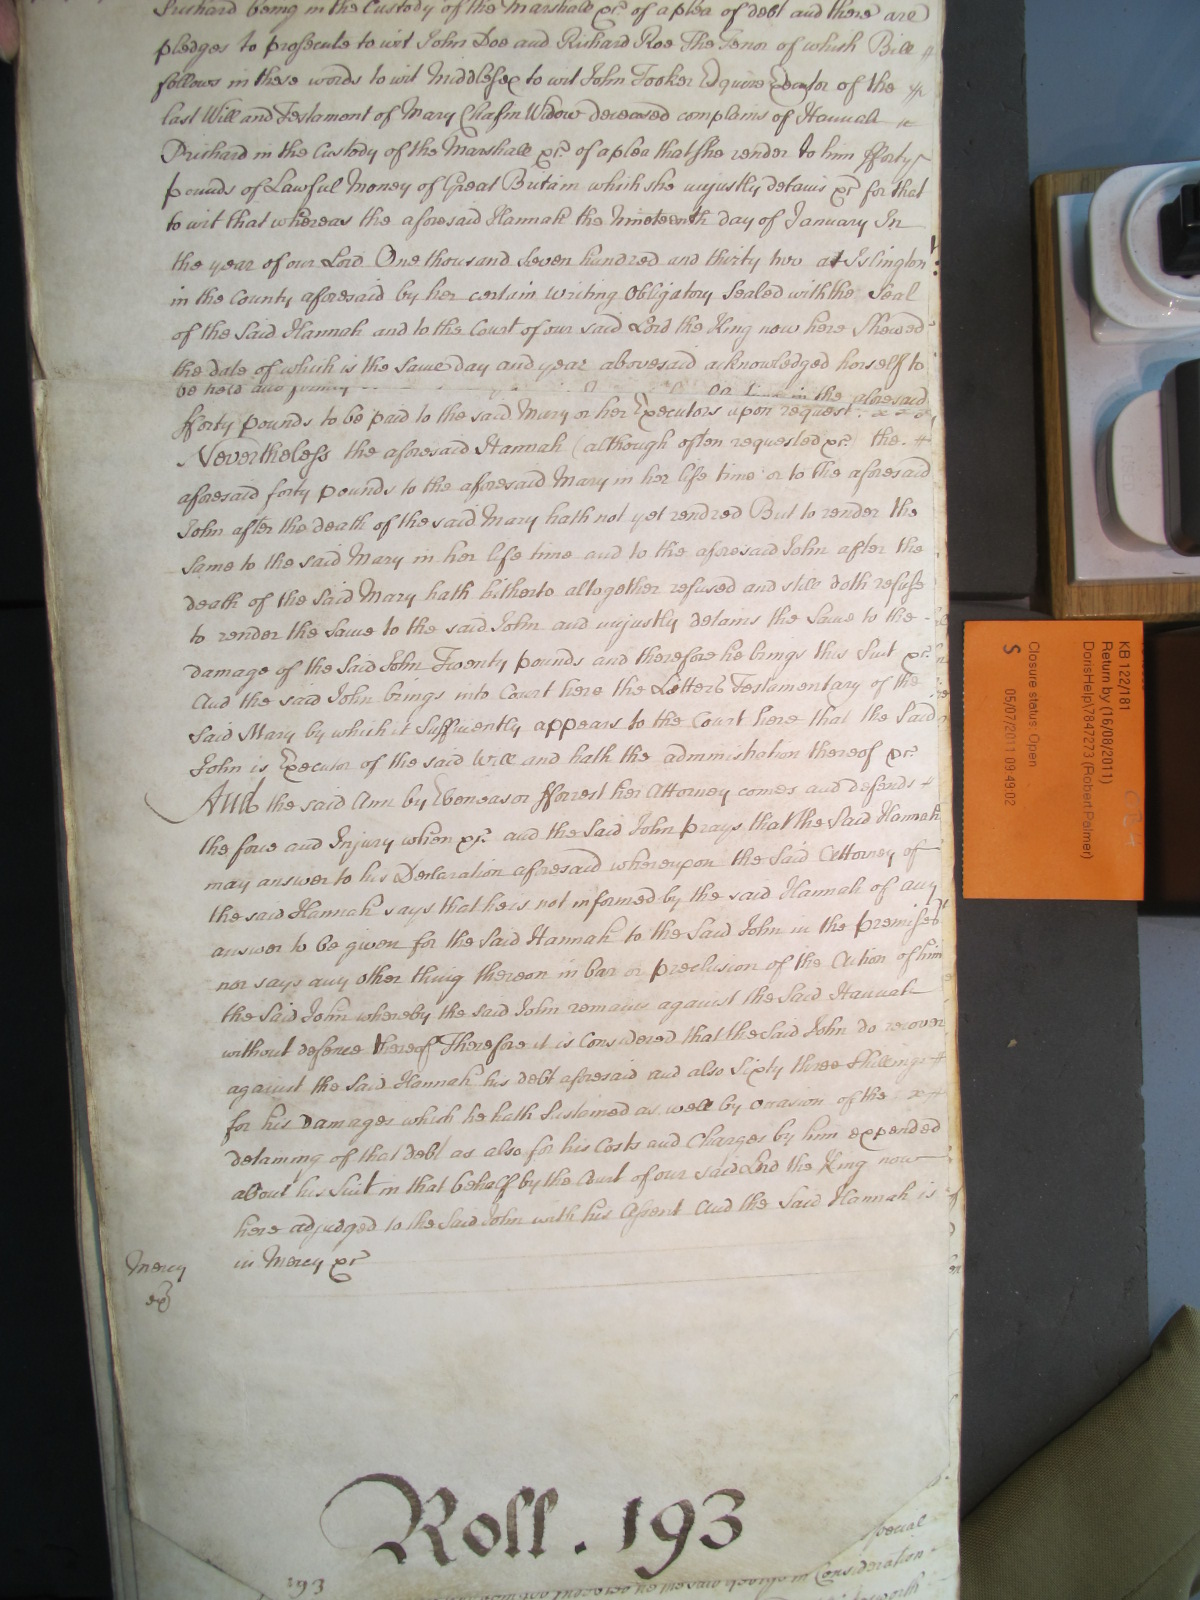 Prichard being in the Custody of the Marshall &c. of a plea of debt and there are
pledges to prosecute to wit John Doe and Richard Roe The Tenor of which Bill
follows in these words to wit Middlesex to wit John Tooker Esquire Executor of the
last Will and Testament of Mary Chafin Widow deceased complains of Hannah
Prichard in the Custody of the Marshall &c. of a plea that she render to him fforty
pounds of Lawful Money of Great Britain which she unjustly detains &c. for that
to wit that whereas the aforesaid Hannah the Nineteenth day of January In
the year of our Lord One thousand Seven hundred and thirty two at Islington
in the County aforesaid by her certain Writing Obligatory Sealed with the Seal
of the Said Hannah and to the Court of our said Lord the King now here Shewed
the date of which is the Same day and year abovesaid acknowledged herself to
be held and firmly in the aforesaid
fforty pounds to be paid to the said Mary or her Executors upon request
Nevertheless the aforesaid Hannah (although often requested &c. the
aforesaid forty pounds to the aforesaid Mary in her life time or to the aforesaid
John after the death of the said Mary hath not yet rendred But to render the
Same to the said Mary in her life time and to the aforesaid John after the
death of the Said Mary hath hitherto altogether refused and still doth refuse
to render the Same to the said John and unjustly detains the Same to the
damage of the Said John Twenty pounds and therefore he brings this Suit &c.
And the said John brings into Court here the Letters Testamentary of the
Said Mary by which it Sufficiently appears to the Court here that the Said
John is Executor of the said Will and hath the administration thereof &c.
And the said Ann by Ebenezer fforrest her Attorney comes and defends
the force and Injury when &c. and the Said John prays that the Said Hannah
may answer to his Declaration aforesaid whereupon the Said Attorney of
the said Hannah says that he is not informed by the said Hannah of any
answer to be given for the Said Hannah to the Said John in the premises
nor says any other thing thereon in bar or preclusion of the Action of him
the Said John whereby the said John remains against the Said Hannah
without defence thereof Therefore it is Considered that the Said John do recover
against the Said Hannah his debt aforesaid and also Sixty three Shillings
for his Damages which he hath Sustained as well by occasion of the
detaining of that debt as also for his Costs and Charges by him expended
about his Suit in that behalf by the Court of our said Lord the King now
here adjudged to the Said John with his Assent And the Said Hannah is
in Mercy &c.
Mercy
Roll. 193
193
Special
Consideration
KB 122/181
Return by (16/08/2011)
DorisHelp\7847273 (Robert Palmer)
Closure status: Open
05/07/2011 09:49:02
S